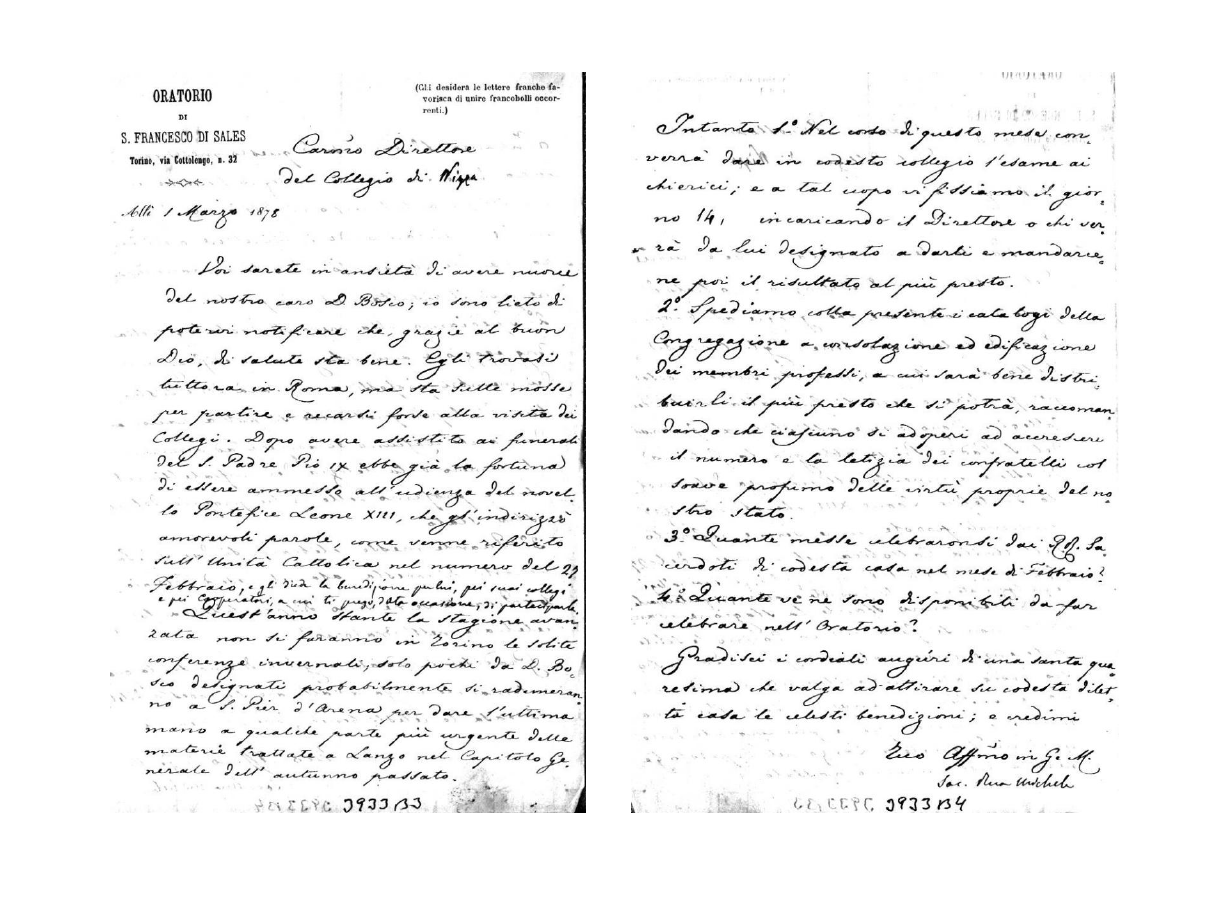 ORATORIO
DI
S. FRANCESCO DI SALES
Torino, via Cottolengo, n. 32
(Chi desidera le lettere franche fa-
vorisca di unire francobolli occor-
renti.)
Carmo Direttore
del Collegio di Nizza
Alli 1 Marzo 1878
Voi sarete in ansietà di avere nuove
del nostro caro D. Bosco; io sono lieto di
potervi notificare che, grazie al buon
Dio, di salute sta bene. Egli trovasi
tuttora in Roma, ma sta sulle mosse
per partire e recarsi forse alla visita dei
Collegi. Dopo avere assistito ai funerali
del S. Padre Pio IX ebbe già la fortuna
di essere ammesso all'udienza del novel-
lo Pontefice Leone XIII, che gl'indirizzò
amorevoli parole, come venne riferito
sull'Unità Cattolica nel numero del 27
Febbraio, e gli diede la benedizione per lui, pei suoi collegi
e pei Cooperatori, a cui ti prego, data occasione, di parteciparla.
Quest'anno stante la stagione avan-
zata non si faranno in Torino le solite
conferenze invernali, solo pochi da D. Bo-
sco designati probabilmente si raduneran-
no a S. Pier d'Arena per dare l'ultima
mano a qualche parte più urgente delle
materie trattate a Lanzo nel Capitolo Ge-
nerale dell'autunno passato.
3933/33
Intanto 1.° Nel corso di questo mese con-
verrà dare in codesto collegio l'esame ai
chierici; e a tal uopo vi fissiamo il gior-
no 14, incaricando il Direttore o chi ver-
rà da lui designato a darli e mandarce-
ne poi il risultato al più presto.
2.° Spediamo colla presente i catalogi della
Congregazione a consolazione ed edificazione
dei membri professi, a cui sarà bene distri-
buirli il più presto che si potrà, raccoman-
dando che ciascuno si adoperi ad accrescere
il numero e la letizia dei confratelli col
soave profumo delle virtù proprie del no-
stro stato.
3.° Quante messe celebraronsi dai RR. Sa-
cerdoti di codesta casa nel mese di Febbraio?
4.° Quante ve ne sono disponibili da far
celebrare nell'Oratorio?
Gradisci i cordiali auguri di una santa qua-
resima che valga ad attirare su codesta dilet-
ta casa le celesti benedizioni; e credimi
Tuo Affmo in G. M.
Sac. Rua Michele
3933/34